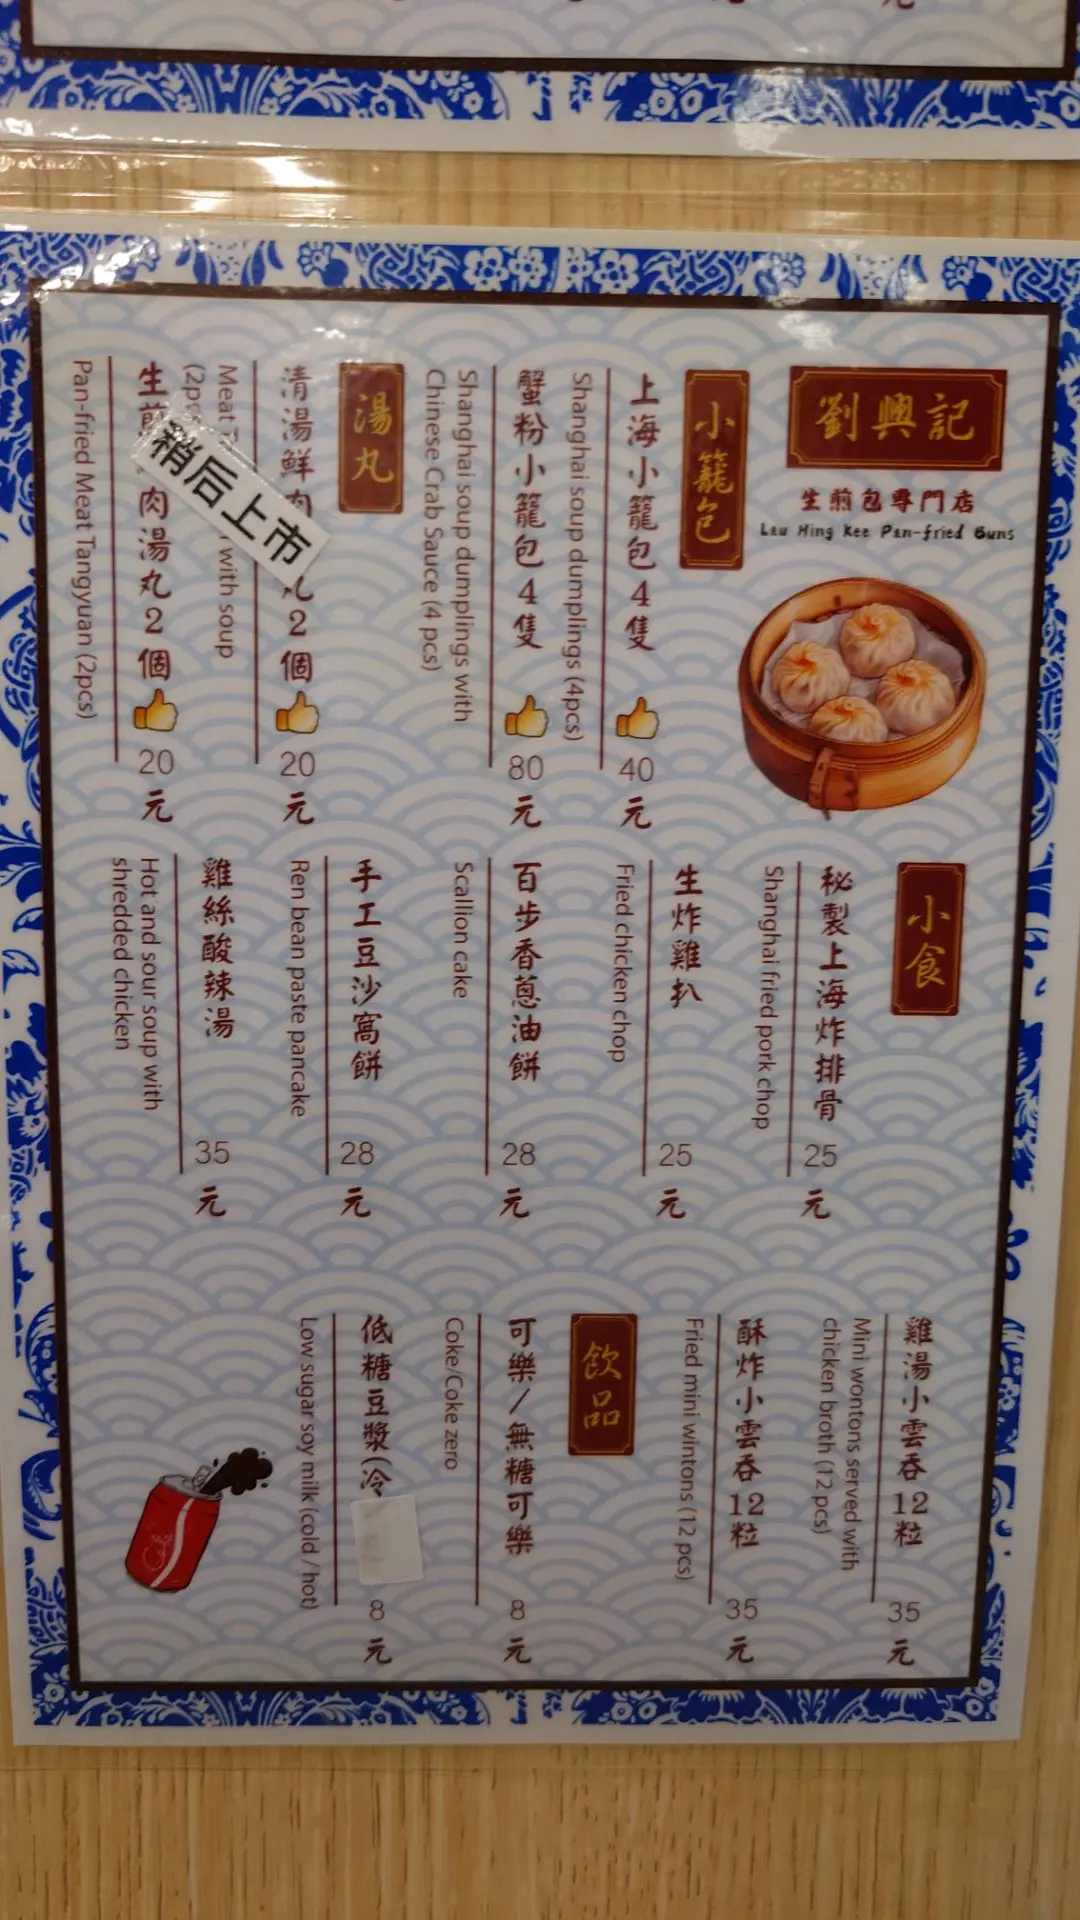 劉興記
生煎包專門店
Lau Hing Kee Pan-fried Buns
小籠包
上海小籠包4隻 40元
Shanghai soup dumplings (4pcs)
蟹粉小籠包4隻 80元
Shanghai soup dumplings with
Chinese Crab Sauce (4 pcs)
湯丸
清湯鮮肉 2個 20元
Meat with soup
稍后上市
生煎 肉湯丸2個 20元
Pan-fried Meat Tangyuan (2pcs)
小食
秘製上海炸排骨 25元
Shanghai fried pork chop
生炸雞扒 25元
Fried chicken chop
百步香蔥油餅 28元
Scallion cake
手工豆沙窩餅 28元
Ren bean paste pancake
雞絲酸辣湯 35元
Hot and sour soup with
shredded chicken
雞湯小雲吞12粒 35元
Mini wontons served with
chicken broth (12 pcs)
酥炸小雲吞12粒 35元
Fried mini wintons (12 pcs)
飲品
可樂/無糖可樂 8元
Coke/Coke zero
低糖豆漿(冷 8元
Low sugar soy milk (cold / hot)